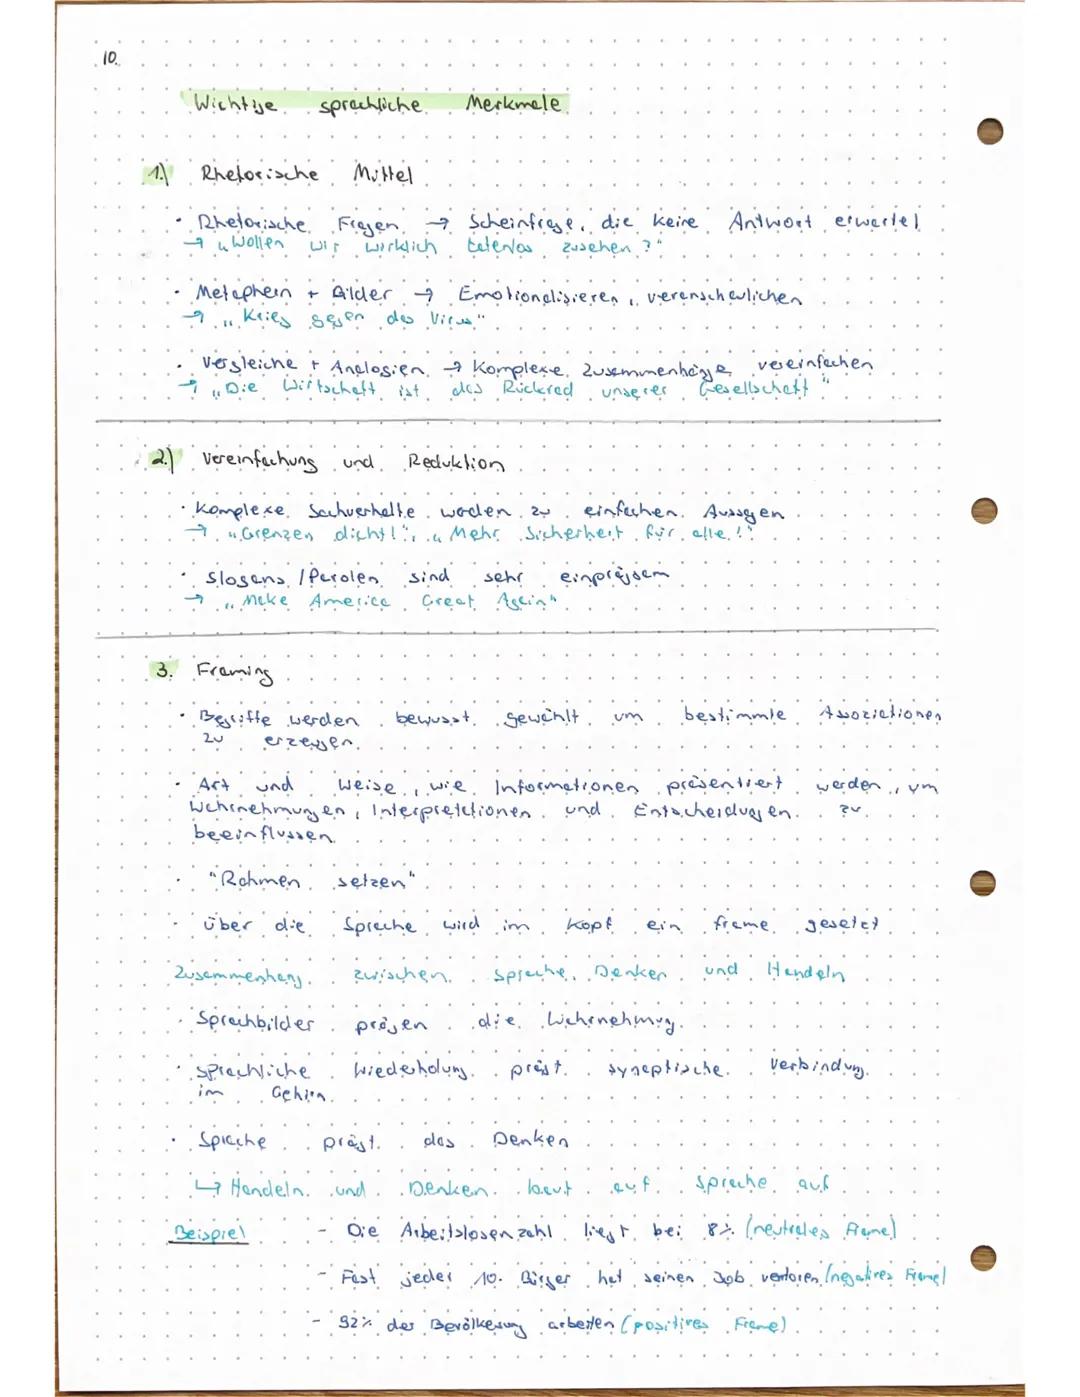 10.
Wichtige sprachliche Merkmale
1.) Rhetorische Mittel
• Rhetorische Fragen → Scheinfrage, die keine Antwort erwartet
→ „Wollen wir wirklich tatenlos zusehen?"
• Metaphern + Bilder → Emotionalisieren, veranschaulichen
→ „Krieg gegen das Virus"
• Vergleiche + Analogien → Komplexe Zusammenhänge vereinfachen
→ „Die Wirtschaft ist das Rückrad unserer Gesellschaft"
2.) Vereinfachung und Reduktion
• Komplexe Sachverhalte werden zu einfachen Aussagen
→ „Grenzen dicht!", „Mehr Sicherheit für alle!"
• Slogans / Parolen sind sehr einprägsam
→ „Make America Great Again"
3. Framing
• Begriffe werden bewusst gewählt um bestimmte Assoziationen
zu erzeugen
• Art und Weise, wie Informationen präsentiert werden, um
Wahrnehmungen, Interpretationen und Entscheidungen zu
beeinflussen
• "Rahmen setzen"
• über die Sprache wird im Kopf ein frame gesetzt
Zusammenhang zwischen Sprache, Denken und Handeln
• Sprachbilder prägen die Wahrnehmung
• sprachliche Wiederholung prägt synaptische Verbindung
im Gehirn
• Sprache prägt das Denken
↳ Handeln und Denken baut auf Sprache auf
Beispiel - Die Arbeitslosenzahl liegt bei 8% (neutrales Frame)
- Fast jeder 10. Bürger hat seinen Job verloren (negatives Frame)
- 92% der Bevölkerung arbeiten (positives Frame)